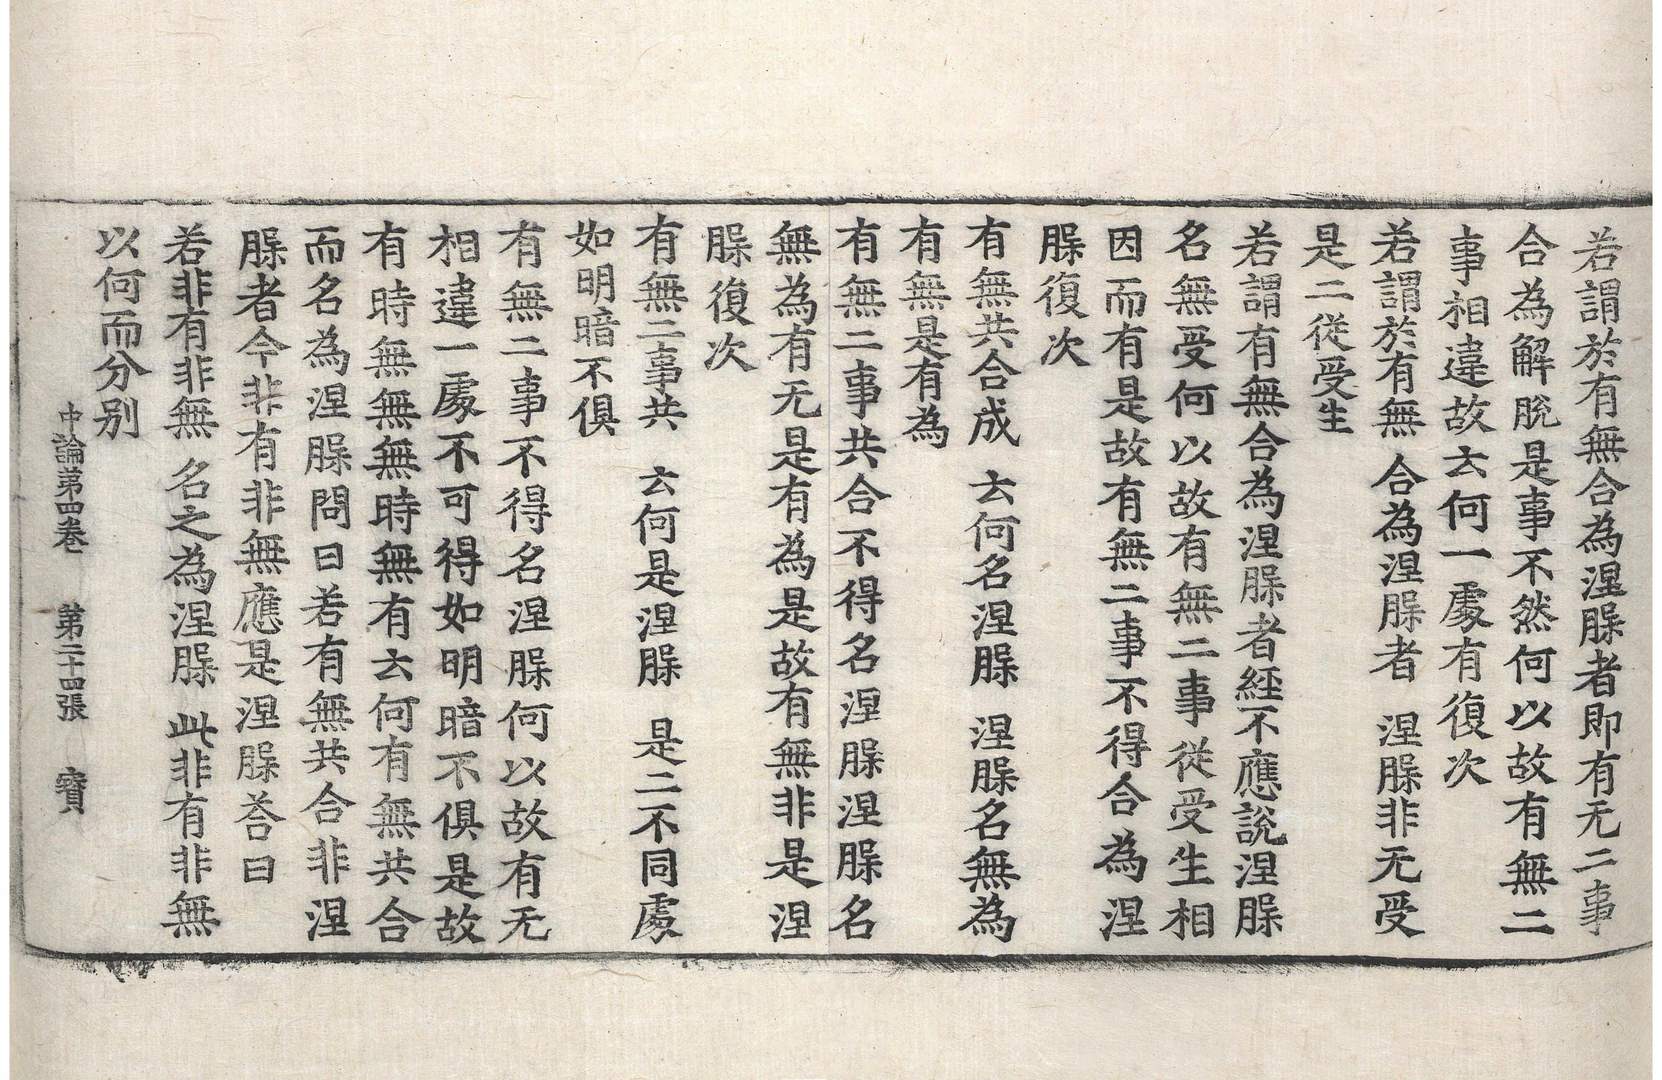 若謂於有無合為涅脲者即有无二事
合為解脫是事不然何以故有無二
事相違故云何一處有復次
若謂於有無 合為涅脲者 涅脲非无受
是二從受生
若謂有無合為涅脲者經不應說涅脲
名無受何以故有無二事從受生相
因而有是故有無二事不得合為涅
脲復次
有無共合成 云何名涅脲 涅脲名無為
有無是有為
有無二事共合不得名涅脲涅脲名
無為有无是有為是故有無非是涅
脲復次
有無二事共 云何是涅脲 是二不同處
如明暗不俱
有無二事不得名涅脲何以故有无
相違一處不可得如明暗不俱是故
有時無無無時無有云何有無共合
而名為涅脲問曰若有無共合非涅
脲者今非有非無應是涅脲荅曰
若非有非無 名之為涅脲 此非有非無
以何而分別
中論第四卷 第二十四張 寶